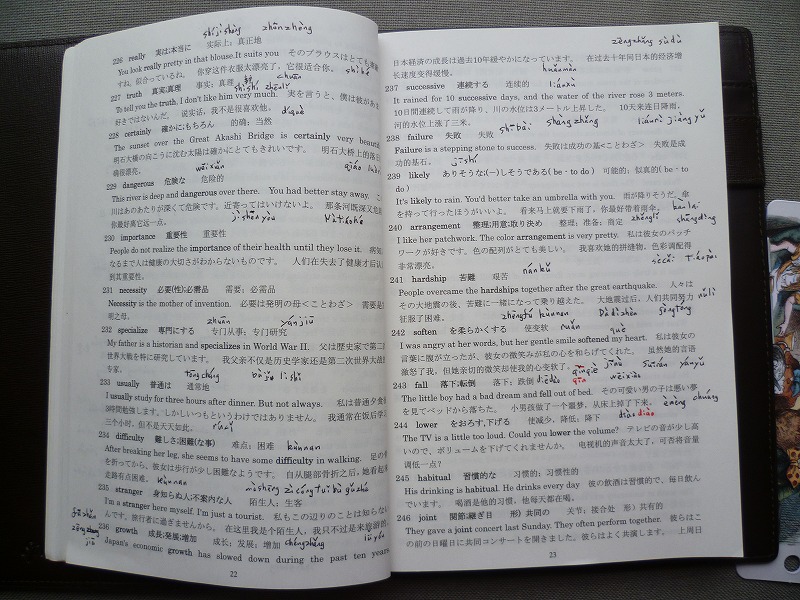 shíjìshàng zhēnzhèng
226 really 実は;本当に 实际上;真正地
You look really pretty in that blouse.It suits you そのブラウスはとても
すね。似合っているね。 你穿这件衣服太漂亮了,它很适合你。
227 truth 真実;真理 事实;真理
To tell you the truth, I don't like him very much. 実を言うと、僕は彼が
好きではないんだ。 说实话,我不是很喜欢他。
díquè
228 certainly 確かに;もちろん 的确;当然
The sunset over the Great Akashi Bridge is certainly very beautiful
明石大橋の向こうに沈む太陽は確かにとてもきれいです。 明石大桥上的落日
确很漂亮。 wēixiǎn
229 dangerous 危険な 危险的
This river is deep and dangerous over there. You had better stay away. こ
川はあのあたりが深くて危険です。近寄ってはいけないよ。 那条河既深又危
你最好离它远一点。
230 importance 重要性 重要性
People do not realize the importance of their health until they lose it. 病気
なるまで人は健康の大切さがわからないものです。 人们在失去了健康才后认
到其重要性。
231 necessity 必要(性);必需品 需要;必需品
Necessity is the mother of invention. 必要は発明の母<ことわざ> 需要是
明之母。
zhuān yánjiū
232 specialize 専門にする 专门从事;专门研究
My father is a historian and specializes in World War II. 父は歴史家で第二
世界大戦を特に研究しています。 我父亲不仅是历史学家还是第二次世界大战
专家。
233 usually 普通は 通常地
I usually study for three hours after dinner. But not always. 私は普通夕食
3時間勉強します。しかしいつもというわけではありません。 我通常在饭后学
三个小时,但不是天天如此。
234 difficulty 難しさ;困難(な事) 难点;困难 kùnnan
After breaking her leg, she seems to have some difficulty in walking. 足の
を折ってから、彼女は歩行が少し困難なようです。 自从腿部骨折之后,她看起
走路有点困难。 kùnnan
235 stranger 身知らぬ人;不案内な人 陌生人;生客
I'm a stranger here myself. I'm just a tourist. 私もこの辺りのことは知らな
んです。旅行者に過ぎませんから。 在这里我是个陌生人,我只不过是来
236 growth 成長;発展;増加 成长;发展;增加
Japan's economic growth has slowed down during the past ten years
22
zēngzhǎng sùdù
日本経済の成長は過去10年緩やかになっています。 在过去十年间日本的经济增
长速度变得缓慢。 huǎnmàn
237 successive 連続する 连续的 liánxù
It rained for 10 successive days, and the water of the river rose 3 meters.
10日間連続して雨が降り、川の水位は3メートル上昇した。 10天来连日降雨,
河的水位上涨了三米。
238 failure 失敗 失败 shībài shàngzhǎng
Failure is a stepping stone to success. 失敗は成功の基<ことわざ> 失败是成
功的基石。 jīshí
239 likely ありそうな(~)しそうである(be·to do) 可能的;似真的(be·to
do)
It's likely to rain. You'd better take an umbrella with you. 雨が降りそうだ、傘
を持って行ったほうがいいよ。 看来马上就要下雨了,你最好带着雨伞。
240 arrangement 整理;用意;取り決め 整理;准备;商定
I like her patchwork. The color arrangement is very pretty. 私は彼女のパッチ
ワークが好きです。色の配列がとても美しい。 我喜欢她的拼缝物,色彩调配得
非常漂亮。
241 hardship 苦難 艰苦
People overcame the hardships together after the great earthquake. 人々は
その大地震の後、苦難に一緒になって乗り越えた。 大地震过后,人们共同努力
征服了困难。 zhēngfú kùnnan
242 soften を柔らかくする 使变软 ruǎn què
I was angry at her words, but her gentle smile softened my heart. 私は彼女の
言葉に腹が立ったが、彼女の微笑みが私の心を和らげてくれた。 虽然她的言语
激怒了我,但她亲切的微笑却使我的心变软了。
243 fall 落下;転倒 落下;跌倒
The little boy had a bad dream and fell out of bed. その可愛い男の子は悪い夢
を見てベッドから落ちた。 小男孩做了一个噩梦,从床上掉了下来。
244 lower をおろす,下げる 使减少,降低;降下
The TV is a little too loud. Could you lower the volume? テレビの音が少し高
いので、ボリュームを下げてくれませんか。 电视机的声音太大了,可否将音量
调低一点?
245 habitual 習慣的な 习惯的;习惯性的
His drinking is habitual. He drinks every day 彼の飲酒は習慣的で、毎日飲ん
でいます。 喝酒是他的习惯,他每天都在喝。
246 joint 関節;継ぎ目 形) 共同の 关节;接合处 形) 共有的
They gave a joint concert last Sunday. They often perform together. 彼らはこ
の前の日曜日に共同コンサートを開きました。彼らはよく共演します。 上周日
23